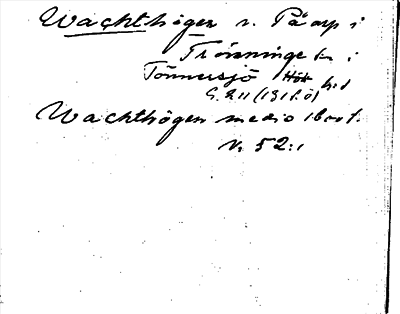 Wachthögen v. Påarp i
Trönninge sn i
Tönnersjö hd
G. 211 (1916)
Wachthögen medio 1600 t.
N. 52:1